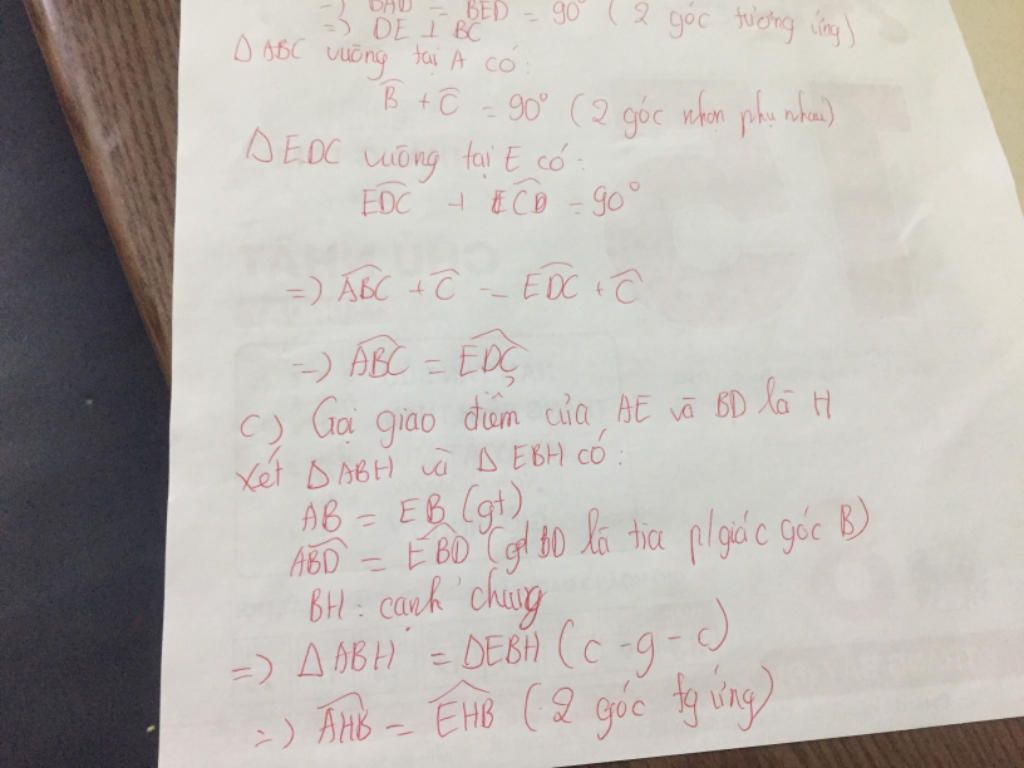 =) BAD = BED = 90° ( 2 góc tương ứng)
=) DE ⊥ BC
Δ ABC vuông tại A có:
B̂ + Ĉ = 90° ( 2 góc nhọn phụ nhau)
Δ EDC vuông tại E có:
EDC + ECD = 90°
=) ABC + Ĉ = EDC + Ĉ
=) ABC = EDC
c) Gọi giao điểm của AE và BD là H
Xét Δ ABH và Δ EBH có:
AB = EB (gt)
ABD = EBD (gt BD là tia p/giác góc B)
BH : cạnh chung
=) Δ ABH = ΔEBH ( c - g - c)
=) AHB = EHB ( 2 góc tg ứng)
CHỦ NHẬT